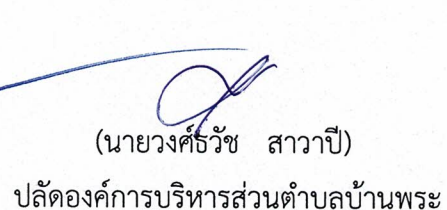 (นายวงศ์ธวัช สาวาปี)
ปลัดองค์การบริหารส่วนตำบลบ้านพระ